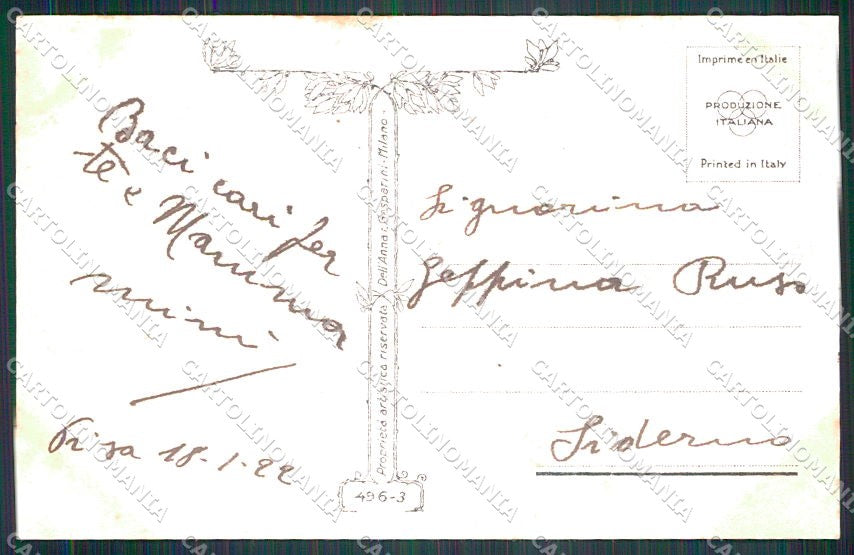 Baci cari per
te e Mamma
mimi
Pisa 18-1-22
Proprietà artistica riservata Dell'Anna e Gasparini-Milano
496-3
Imprimé en Italie
PRODUZIONE
ITALIANA
Printed in Italy
Signorina
Geppina Russo
Siderno
CARTOLINOMANIA